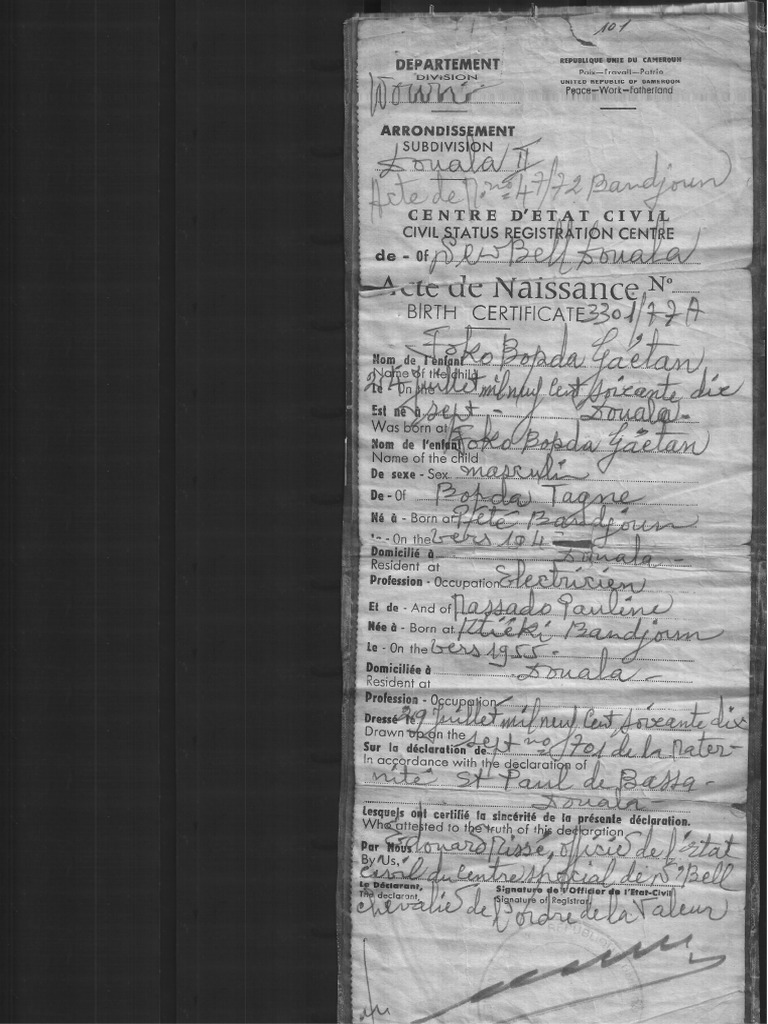 101
DEPARTEMENT
DIVISION
Wouri
REPUBLIQUE UNIE DU CAMEROUN
Paix—Travail—Patrie
UNITED REPUBLIC OF CAMEROON
Peace—Work—Fatherland
ARRONDISSEMENT
SUBDIVISION
Douala II
Acte de N. nº 47/72 Bandjoun
CENTRE D'ETAT CIVIL
CIVIL STATUS REGISTRATION CENTRE
de - Of New Bell Douala
Acte de Naissance Nº
BIRTH CERTIFICATE 3301/77A
Foko Bopda Gaëtan
Nom de l'enfant
Name of the child
Le - On the 24 juillet mil neuf Cent Soixante dix
Est né à sept - Douala -
Was born at
Nom de l'enfant Foko Bopda Gaëtan
Name of the child
De sexe - Sex masculin
De - Of Bopda Tagne
Né à - Born at Bandjoun
- On the vers 194
Domicilié à Douala -
Resident at
Profession - Occupation Electricien
Et de - And of Massado Pauline
Née à - Born at Bandjoun
Le - On the vers 1955 -
Domiciliée à Douala -
Resident at
Profession - Occupation
Dressé le 29 juillet mil neuf Cent Soixante dix
Drawn up on the sept nº 1701 de la Mater-
Sur la déclaration de
In accordance with the declaration of
nité St Paul de Bassa -
Douala
Lesquels ont certifié la sincérité de la présente déclaration.
Who attested to the truth of this declaration
Par Nous Edouard officié de l'état
By Us,
civil du centre spécial de N. Bell
Le Déclarant,
The declarant,
Signature de l'Officier de l'Etat-Civil
Signature of Registrar
Chevalié de l'ordre de la Valeur